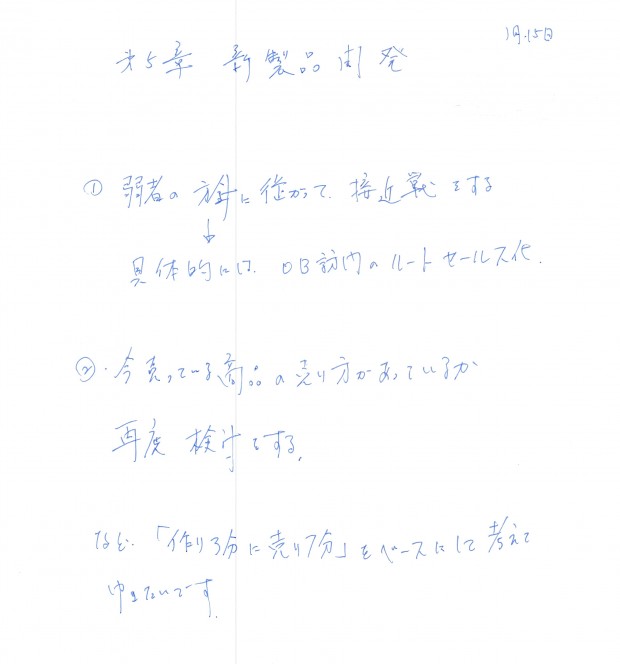 1月.15日
第5章 新製品開発
① 弱者の方針に従がって、接近戦をする
↓
具体的には、OB訪問のルートセールス化.
②・今売っている商品の売り方があっているか
再度 検討をする.
など、「作り3分に売り7分」をベースにして考えて
ゆきたいです.